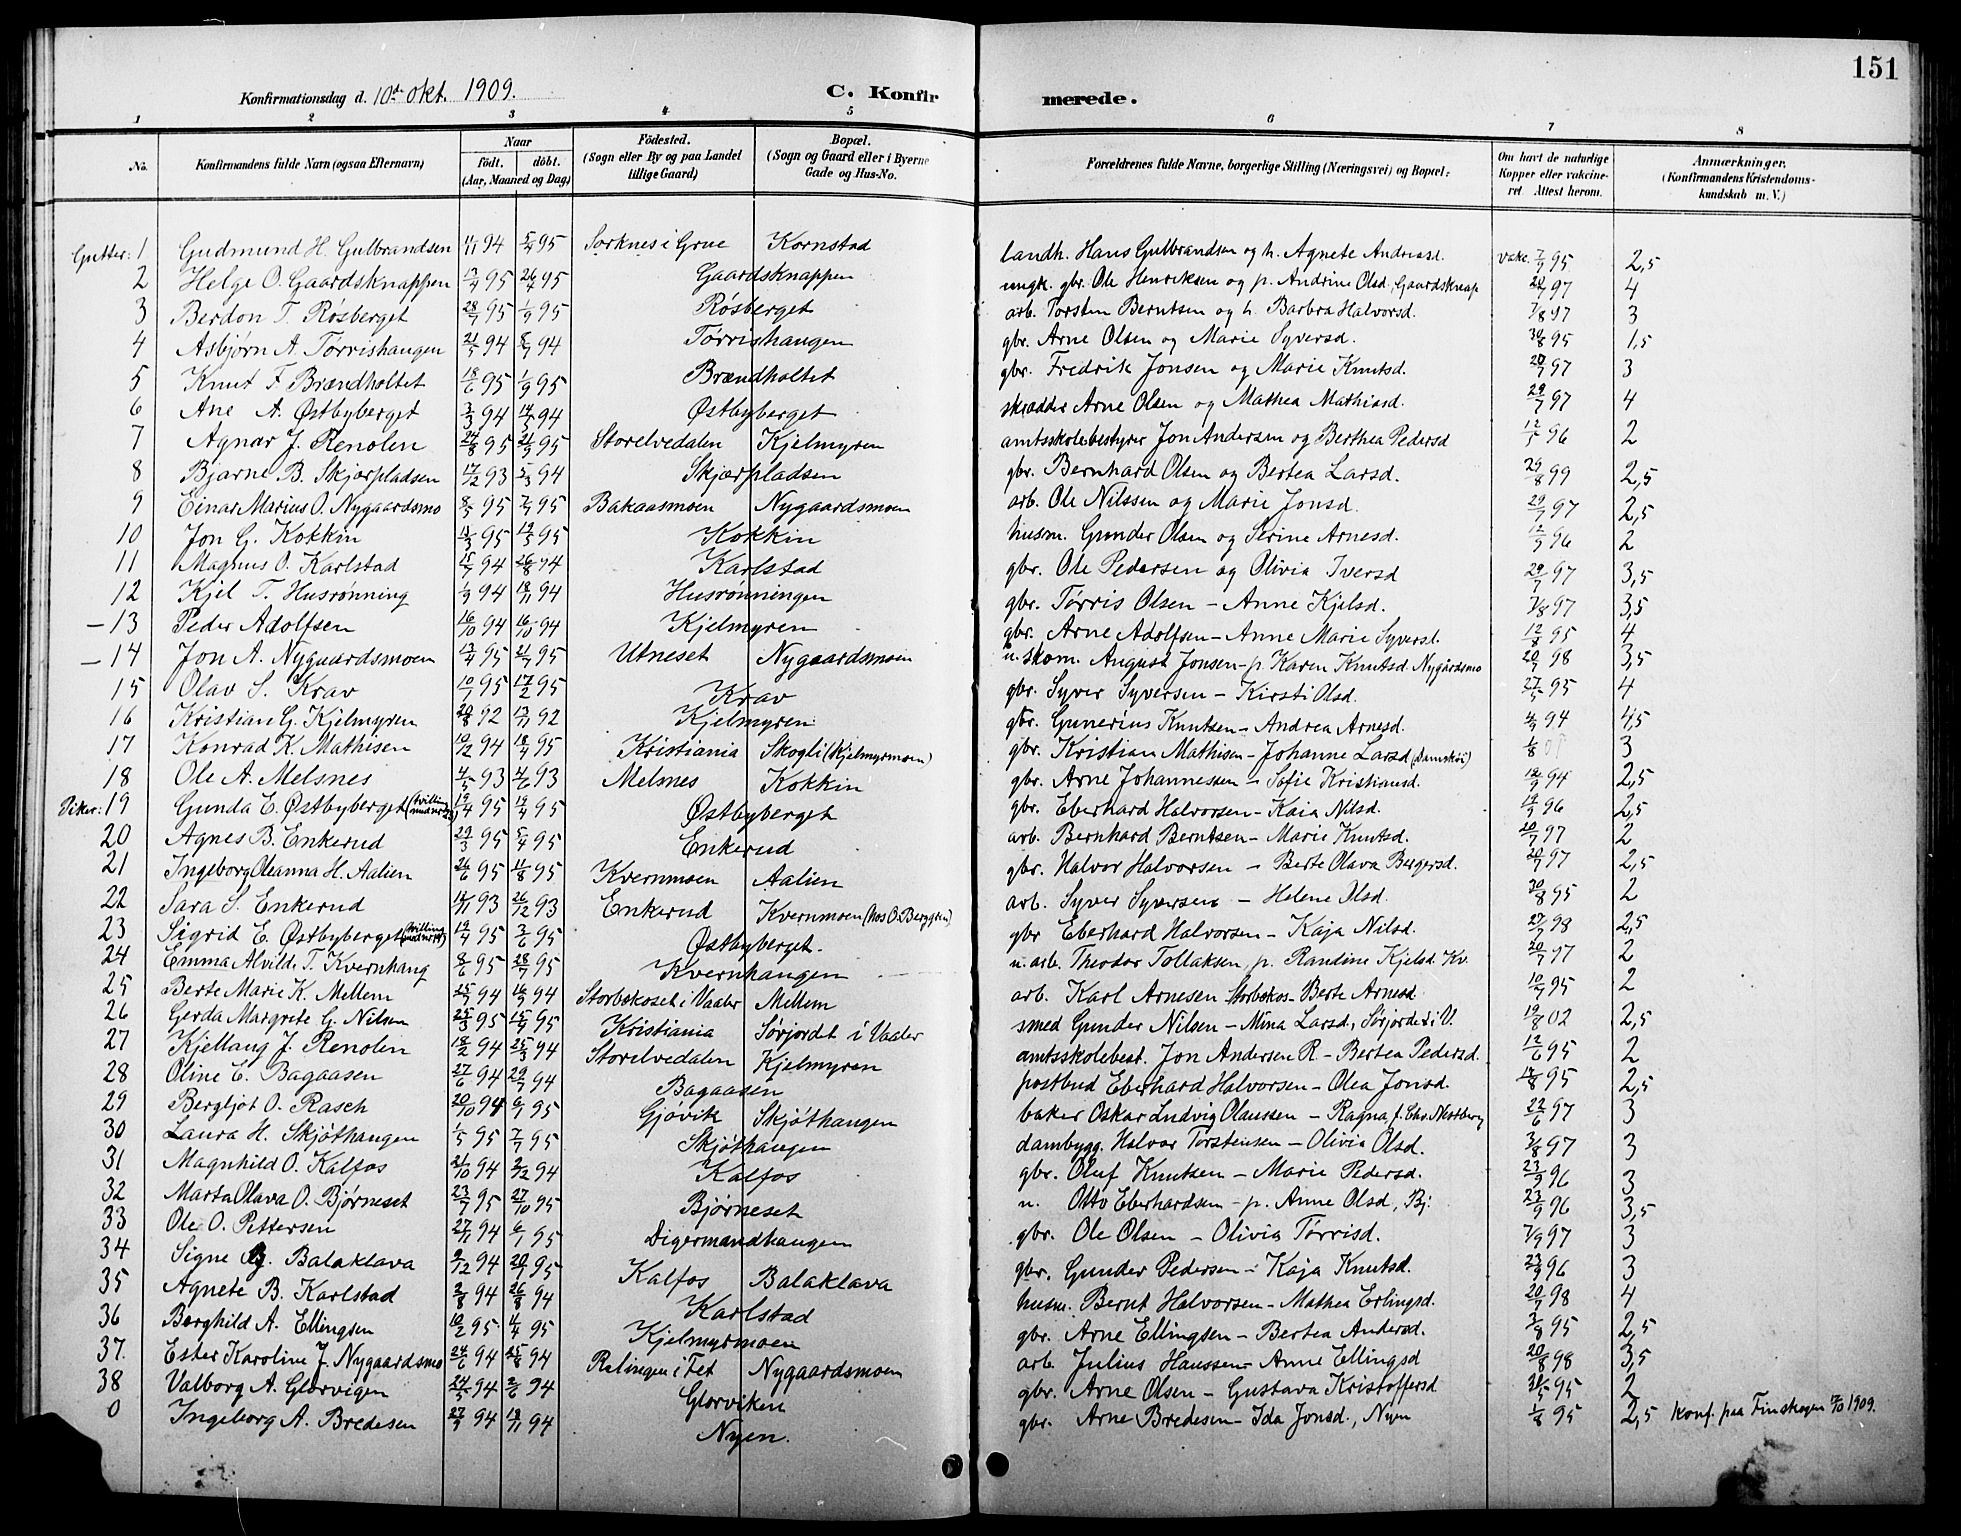 151
Konfirmationsdag d. 10de okt. 1909. C. Konfirmerede.
1 2 3 4 5 6 7 8
No. Konfirmandens fulde Navn (ogsaa Efternavn) Naar födt. döbt. (Aar, Maaned og Dag) Födested. (Sogn eller By og paa Landet tillige Gaard) Bopæl. (Sogn og Gaard eller i Byerne Gade og Hus-No. Forældrenes fulde Navne, borgerlige Stilling (Næringsvei) og Bopæl: Om havt de naturlige Kopper eller vakcineret. Attest herom. Anmærkninger. (Konfirmandens Kristendomskundskab m. V.)
Gutter: 1 Gudmund H. Gulbrandsen 94 95 Sorknes i Grue Kornstad landh. Hans Gulbrandsen og h. Agnete Andersd. vakc. 95 2,5
2 Helge O. Gaardsknappen 13/4 95 26/4 95 Gaardsknappen ungk. gbr. Ole Henriksen og p. Andrine Olsd. Gaardsknap 97 4
3 Berdon T. Røsberget 28/7 95 1/9 95 Røsberget arb. Torsten Berntsen og h. Barbra Halvorsd. 7/8 97 3
4 Asbjørn A. Tørrishaugen 21/5 94 8/7 94 Tørrishaugen gbr. Arne Olsen og Marie Syversd. 30/8 95 1,5
5 Knut F. Brændholtet 18/6 95 1/9 95 Brændholtet gbr. Fredrik Jonsen og Marie Knutsd. 20/7 97 3
6 Ane A. Østbyberget 3/3 94 14/5 94 Østbyberget skrædder Arne Olsen og Mathea Mathiasd. 29/7 97 4
7 Agnar J. Renolen 24/8 95 21/9 95 Storelvedalen Kjelmyren amtsskolebestyrer Jon Andersen og Berthea Pedersd 96 2
8 Bjarne B. Skjærpladsen 17/12 93 5/3 94 Skjærpladsen gbr. Bernhard Olsen og Bertea Larsd. 29/8 99 2,5
9 Einar Marius O. Nygaardsmo 8/5 95 7/7 95 Bakaasmoen Nygaardsmoen arb. Ole Nilssen og Marie Jonsd. 29/7 97 2,5
10 Jon G. Kokkin 95 95 Kokkin husm. Gunder Olsen og Serine Arnesd. 96 2
11 Magnus O. Karlstad 15/7 94 26/8 94 Karlstad gbr. Ole Pedersen og Olivia Iversd 29/7 97 3,5
12 Kjel T. Husrønning 94 18/11 94 Husrønningen gbr. Tørris Olsen – Anne Kjelsd. 7/8 97 3,5
– 13 Peder Adolfsen 16/10 94 16/10 94 Kjelmyren gbr. Arne Adolfsen – Anne Marie Syversd. 12/8 95 4
– 14 Jon A. Nygaardsmoen 13/4 95 21/7 95 Utneset Nygaardsmoen u. skom. August Jonsen – p. Karen Knutsd. Nygårdsmo 20/7 98 3,5
15 Olav S. Krav 95 17/2 95 Krav gbr. Syver Syversen – Kirsti Olsd. 27/5 95 4
16 Kristian G. Kjelmyren 20/8 92 13/11 92 Kjelmyren gbr. Gunerius Knutsen – Andrea Arnesd. 94 4,5
17 Konrad K. Mathisen 10/12 94 18/4 95 Kristiania Skogli (Kjelmyrmoen) gbr. Kristian Mathisen – Johanne Larsd 3
18 Ole A. Melsnes 4/5 93 4/6 93 Melsnes Kokkin gbr. Arne Johannessen – Sofie Kristiansd. 94 2,5
Piker: 19 Gunda E. Østbyberget (tvilling med nr 23) 95 95 Østbyberget gbr. Eberhard Halvorsen – Kaia Nilsd. 96 2,5
20 Agnes B. Enkerud 95 5/4 95 Enkerud arb. Bernhard Berntsen – Marie Knutsd. 20/7 97 2
21 Ingeborg Oleanna H. Aalien 26/6 95 11/8 95 Kvernmoen Aalien gbr. Halvor Halvorsen – Berte Olava Bergersd. 20/7 97 2,5
22 Sara S. Enkerud 12/11 93 26/12 93 Enkerud Kvernmoen (hos O. Berggren) arb. Syver Syversen – Helene Olsd. 30/8 95 2
23 Sigrid E. Østbyberget (tvilling med nr 19) 95 3/6 95 Østbyberget. gbr Eberhard Halvorsen – Kaja Nilsd. 98 2,5
24 Emma Alvilde T. Kvernhaug 8/6 95 28/7 95 Kvernhaugen u. arb. Theodor Tollaksen, p. Randine Kjelsd. Kv. 20/7 97 2
25 Berte Marie K. Mellem 25/7 94 16/9 94 Storbekoset i Vaaler Mellem arb. Karl Arnesen Storbekos – Berte Arnesd 10/7 95 2
26 Gerda Margrete G. Nilsen 25/3 95 15/9 95 Kristiania Sørjordet i Vaaler smed Gunder Nilsen – Mina Larsd., Sørjordet i V. 19/8 02 2,5
27 Kjellaug J. Renolen 18/2 94 25/3 94 Storelvedalen Kjelmyren amtsskolebest. Jon Andersen R. – Bertea Pedersd. 12/6 95 2
28 Oline E. Bagaasen 27/6 94 29/7 94 Bagaasen postbud Eberhard Halvorsen – Olea Jonsd. 95 2,5
29 Bergljot O. Rasch 20/10 94 6/1 95 Gjøvik Skjøthaugen baker Oskar Ludvig Olaussen – Ragna 22/6 97 3
30 Laura H. Skjøthaugen 1/5 95 7/7 95 Skjøthaugen dambygg. Halvor Torstensen – Olivia Olsd. 3/8 97 3
31 Magnhild O. Kalfos 21/10 94 2/12 94 Kalfos gbr. Oluf Knutsen – Marie Pedersd. 23/9 96 3
32 Marta Olava O. Bjørneset 23/7 95 27/10 95 Bjørneset u. Otto Eberhardsen – p. Anne Olsd, Bj. 23/9 96 3,5
33 Ole O. Pettersen 27/11 94 6/1 95 Digermandhaugen gbr. Ole Olsen – Olivia Tørrisd. 7/9 97 3
34 Signe G. Balaklava 9/12 94 20/1 95 Kalfos Balaklava gbr. Gunder Pedersen – Kaja Knutsd. 23/9 96 3
35 Agnete B. Karlstad 2/8 94 26/8 94 Karlstad husm. Bernt Halvorsen – Mathea Erlingsd. 20/7 98 4
36 Borghild A. Ellingsen 10/2 95 4/4 95 Kjelmyrmoen gbr. Arne Ellingsen – Bertea Andersd. 3/8 95 2,5
37. Ester Karoline J. Nygaardsmo 24/6 94 25/8 94 Rælingen i Fet Nygaardsmoen arb. Julius Hanssen – Anne Ellingsd 20/8 98 3,5
38 Valborg A. Glorvigen 24/5 94 2/6 94 Glorviken gbr. Arne Olsen – Gustava Kristoffersd 95 2
0 Ingeborg A. Bredesen 27/9 94 18/11 94 Nyen. gbr. Arne Bredesen – Ida Jonsd., Nyen 1/8 95 2,5 Konf. paa Finskogen 1909.